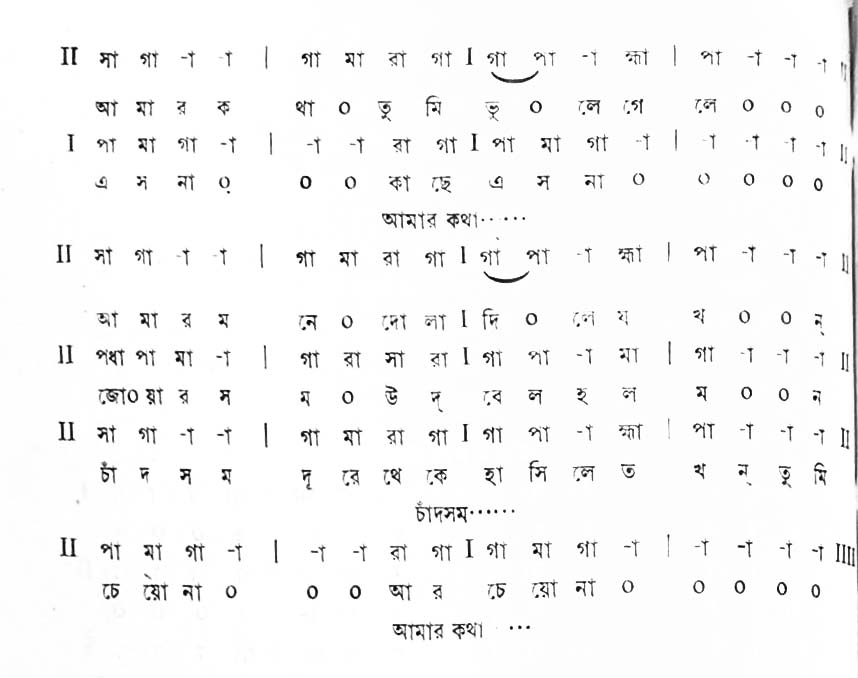 II সা গা -া -া | গা মা রা গা I গা পা -া হ্মা | পা -া -া -া II
আ মা র ক থা ০ তু মি ভু ০ লে গে লে ০ ০ ০
I পা মা গা -া | -া -া রা গা I পা মা গা -া | -া -া -া -া II
এ স না ০ ০ ০ কা ছে এ স না ০ ০ ০ ০ ০
আমার কথা······
II সা গা -া -া | গা মা রা গা I গা পা -া হ্মা | পা -া -া -া II
আ মা র ম নে ০ দো লা I দি ০ লে য খ ০ ০ ন্
II পধা পা মা -া | গা রা সা রা I গা পা -া মা | গা -া -া -া II
জো০ য়া র স ম ০ উ দ্ বে ল হ ল ম ০ ০ ন
II সা গা -া -া | গা মা রা গা I গা পা -া হ্মা | পা -া -া -া II
চাঁ দ স ম দূ রে থে কে হা সি লে ত খ ন্ তু মি
চাঁদসম······
II পা মা গা -া | -া -া রা গা I গা মা গা -া | -া -া -া -া IIII
চে য়ো না ০ ০ ০ আ র চে য়ো না ০ ০ ০ ০ ০
আমার কথা ···